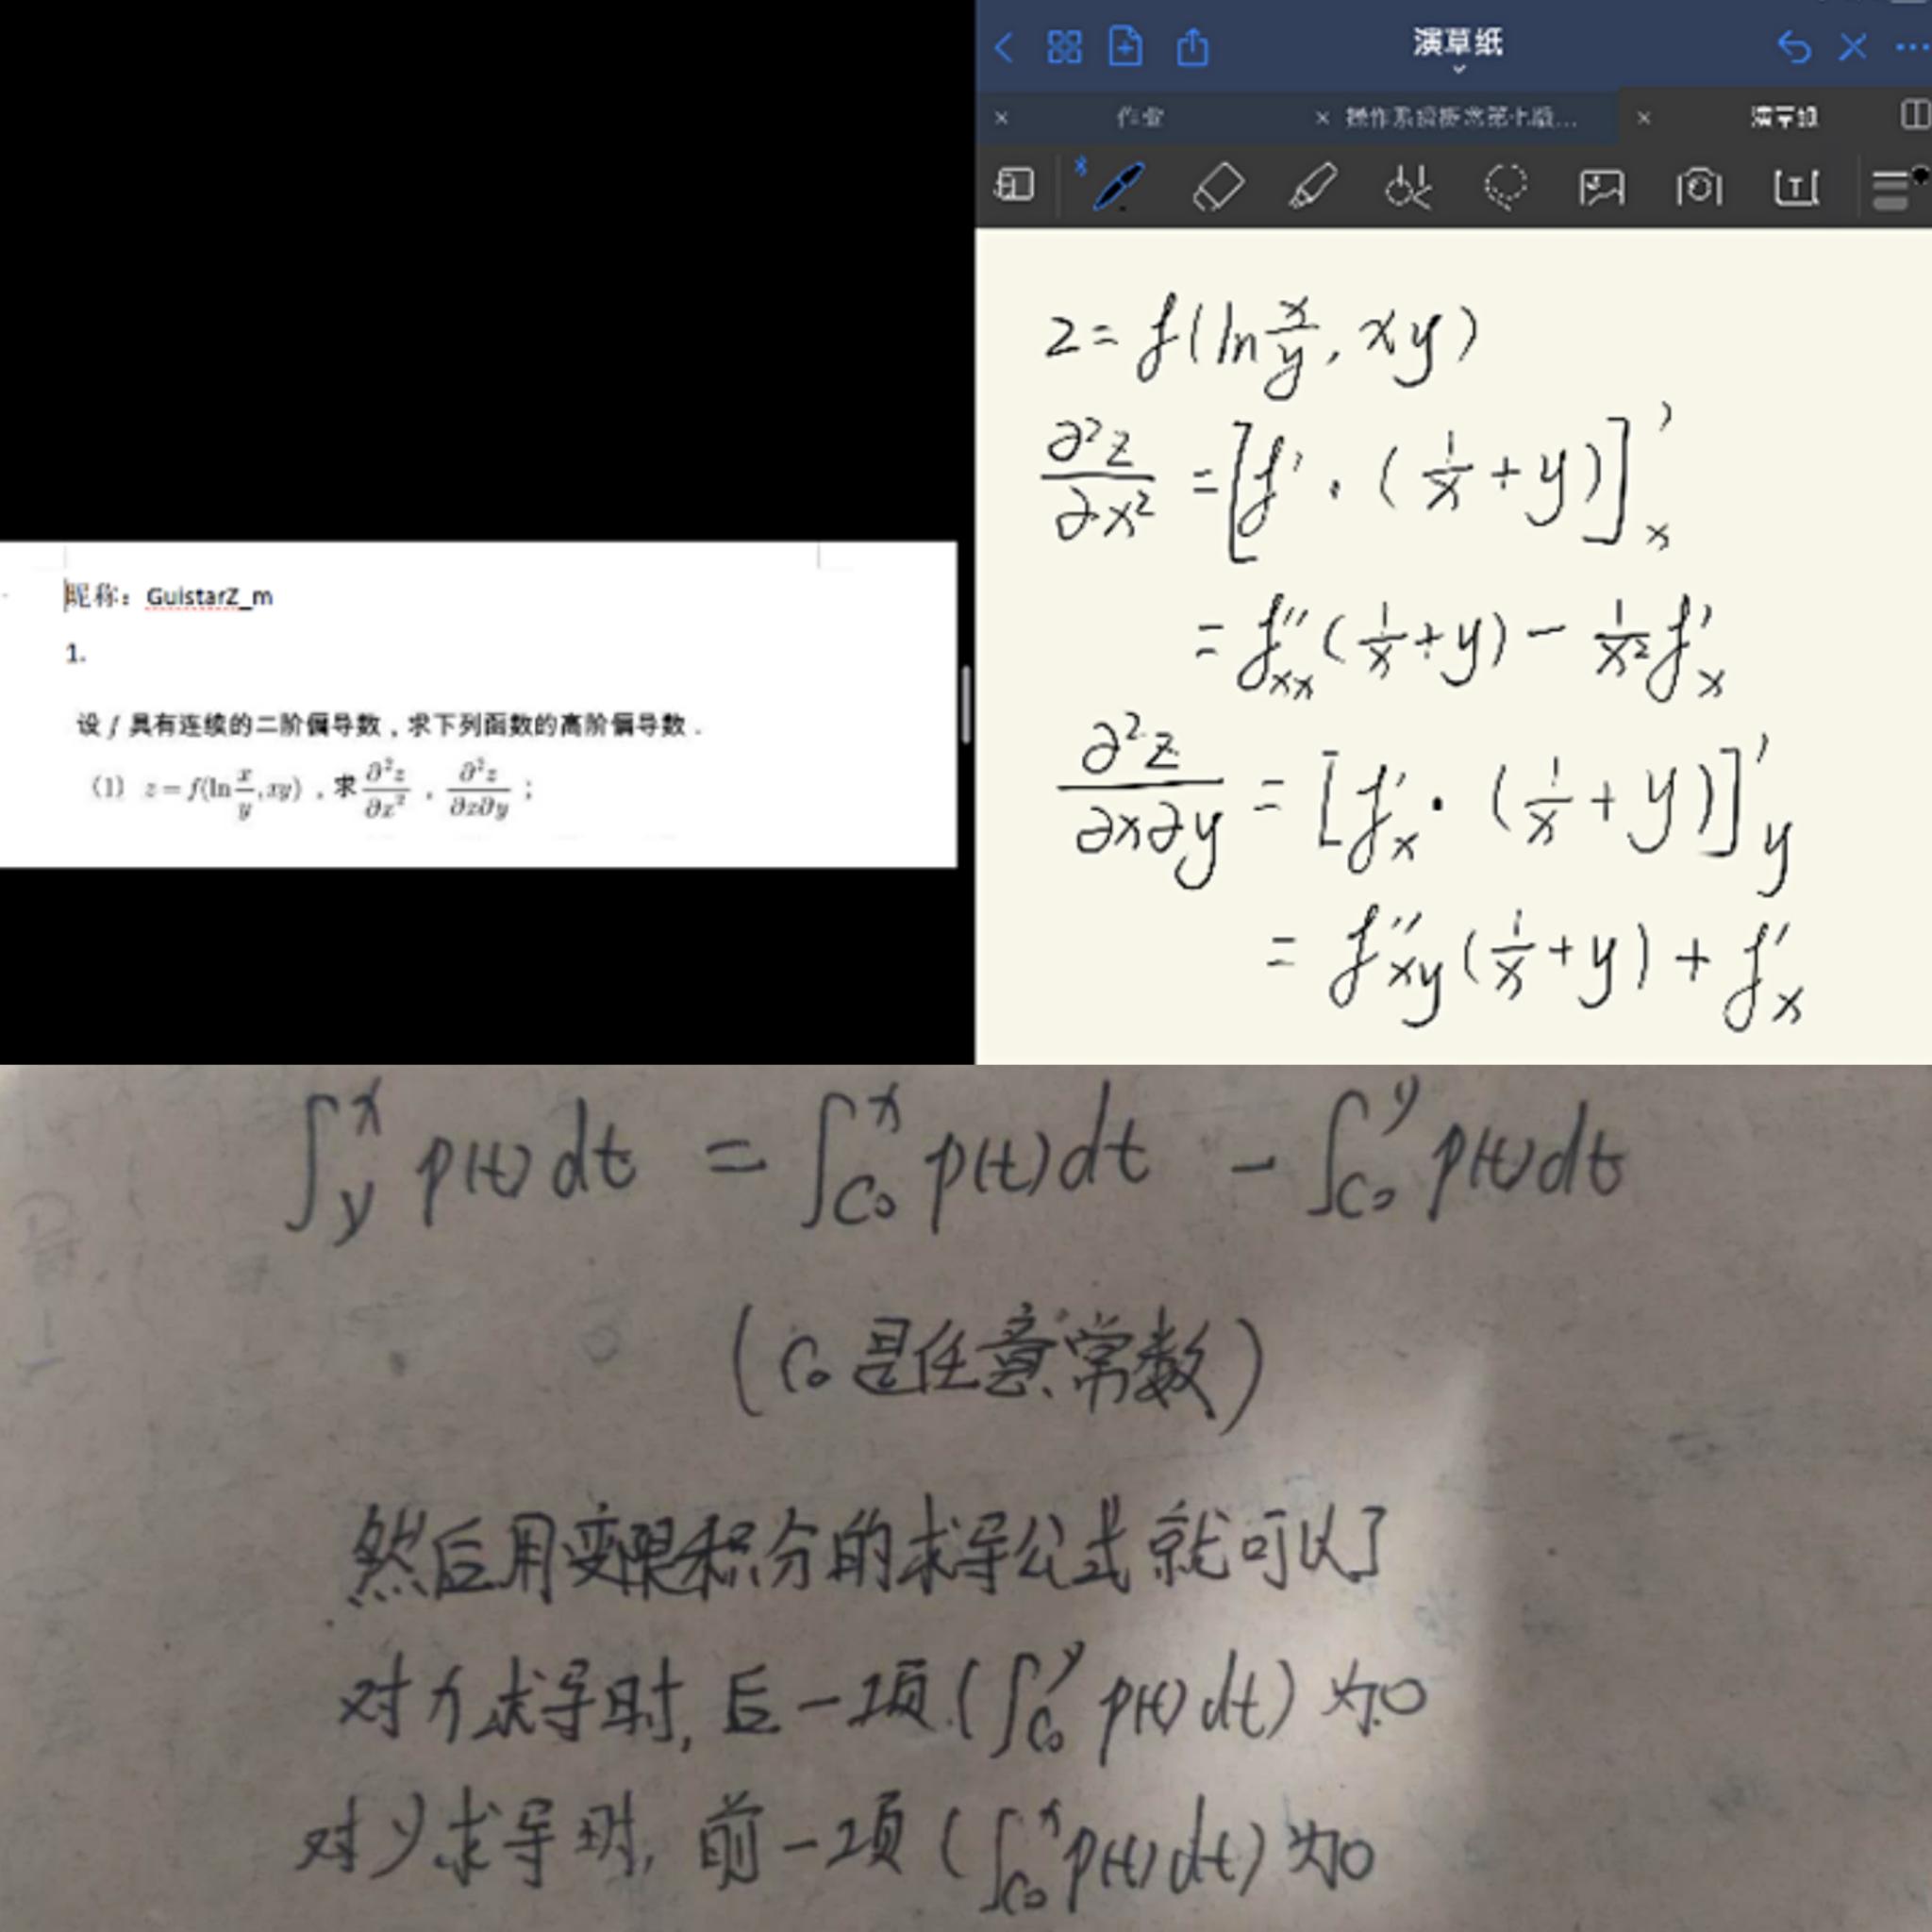 昵称：GuistarZ_m
1.
设 f 具有连续的二阶偏导数，求下列函数的高阶偏导数．
（1） z = f(ln x/y, xy) ，求 ∂²z/∂x² ， ∂²z/∂x∂y ；
演草纸
作业
演草纸
z = f(ln x/y, xy)
∂²z/∂x² = [f′ · (1/x + y)]′ₓ
= f″ₓₓ(1/x + y) − 1/x² f′ₓ
∂²z/∂x∂y = [f′ₓ · (1/x + y)]′_y
= f″_xy(1/x + y) + f′ₓ
∫_y^x p(t)dt = ∫_{C₀}^x p(t)dt − ∫_{C₀}^y p(t)dt
(C₀是任意常数)
然后用变限积分的求导公式就可以了
对x求导时, 后一项(∫_{C₀}^y p(t)dt)为0
对y求导时, 前一项(∫_{C₀}^x p(t)dt)为0